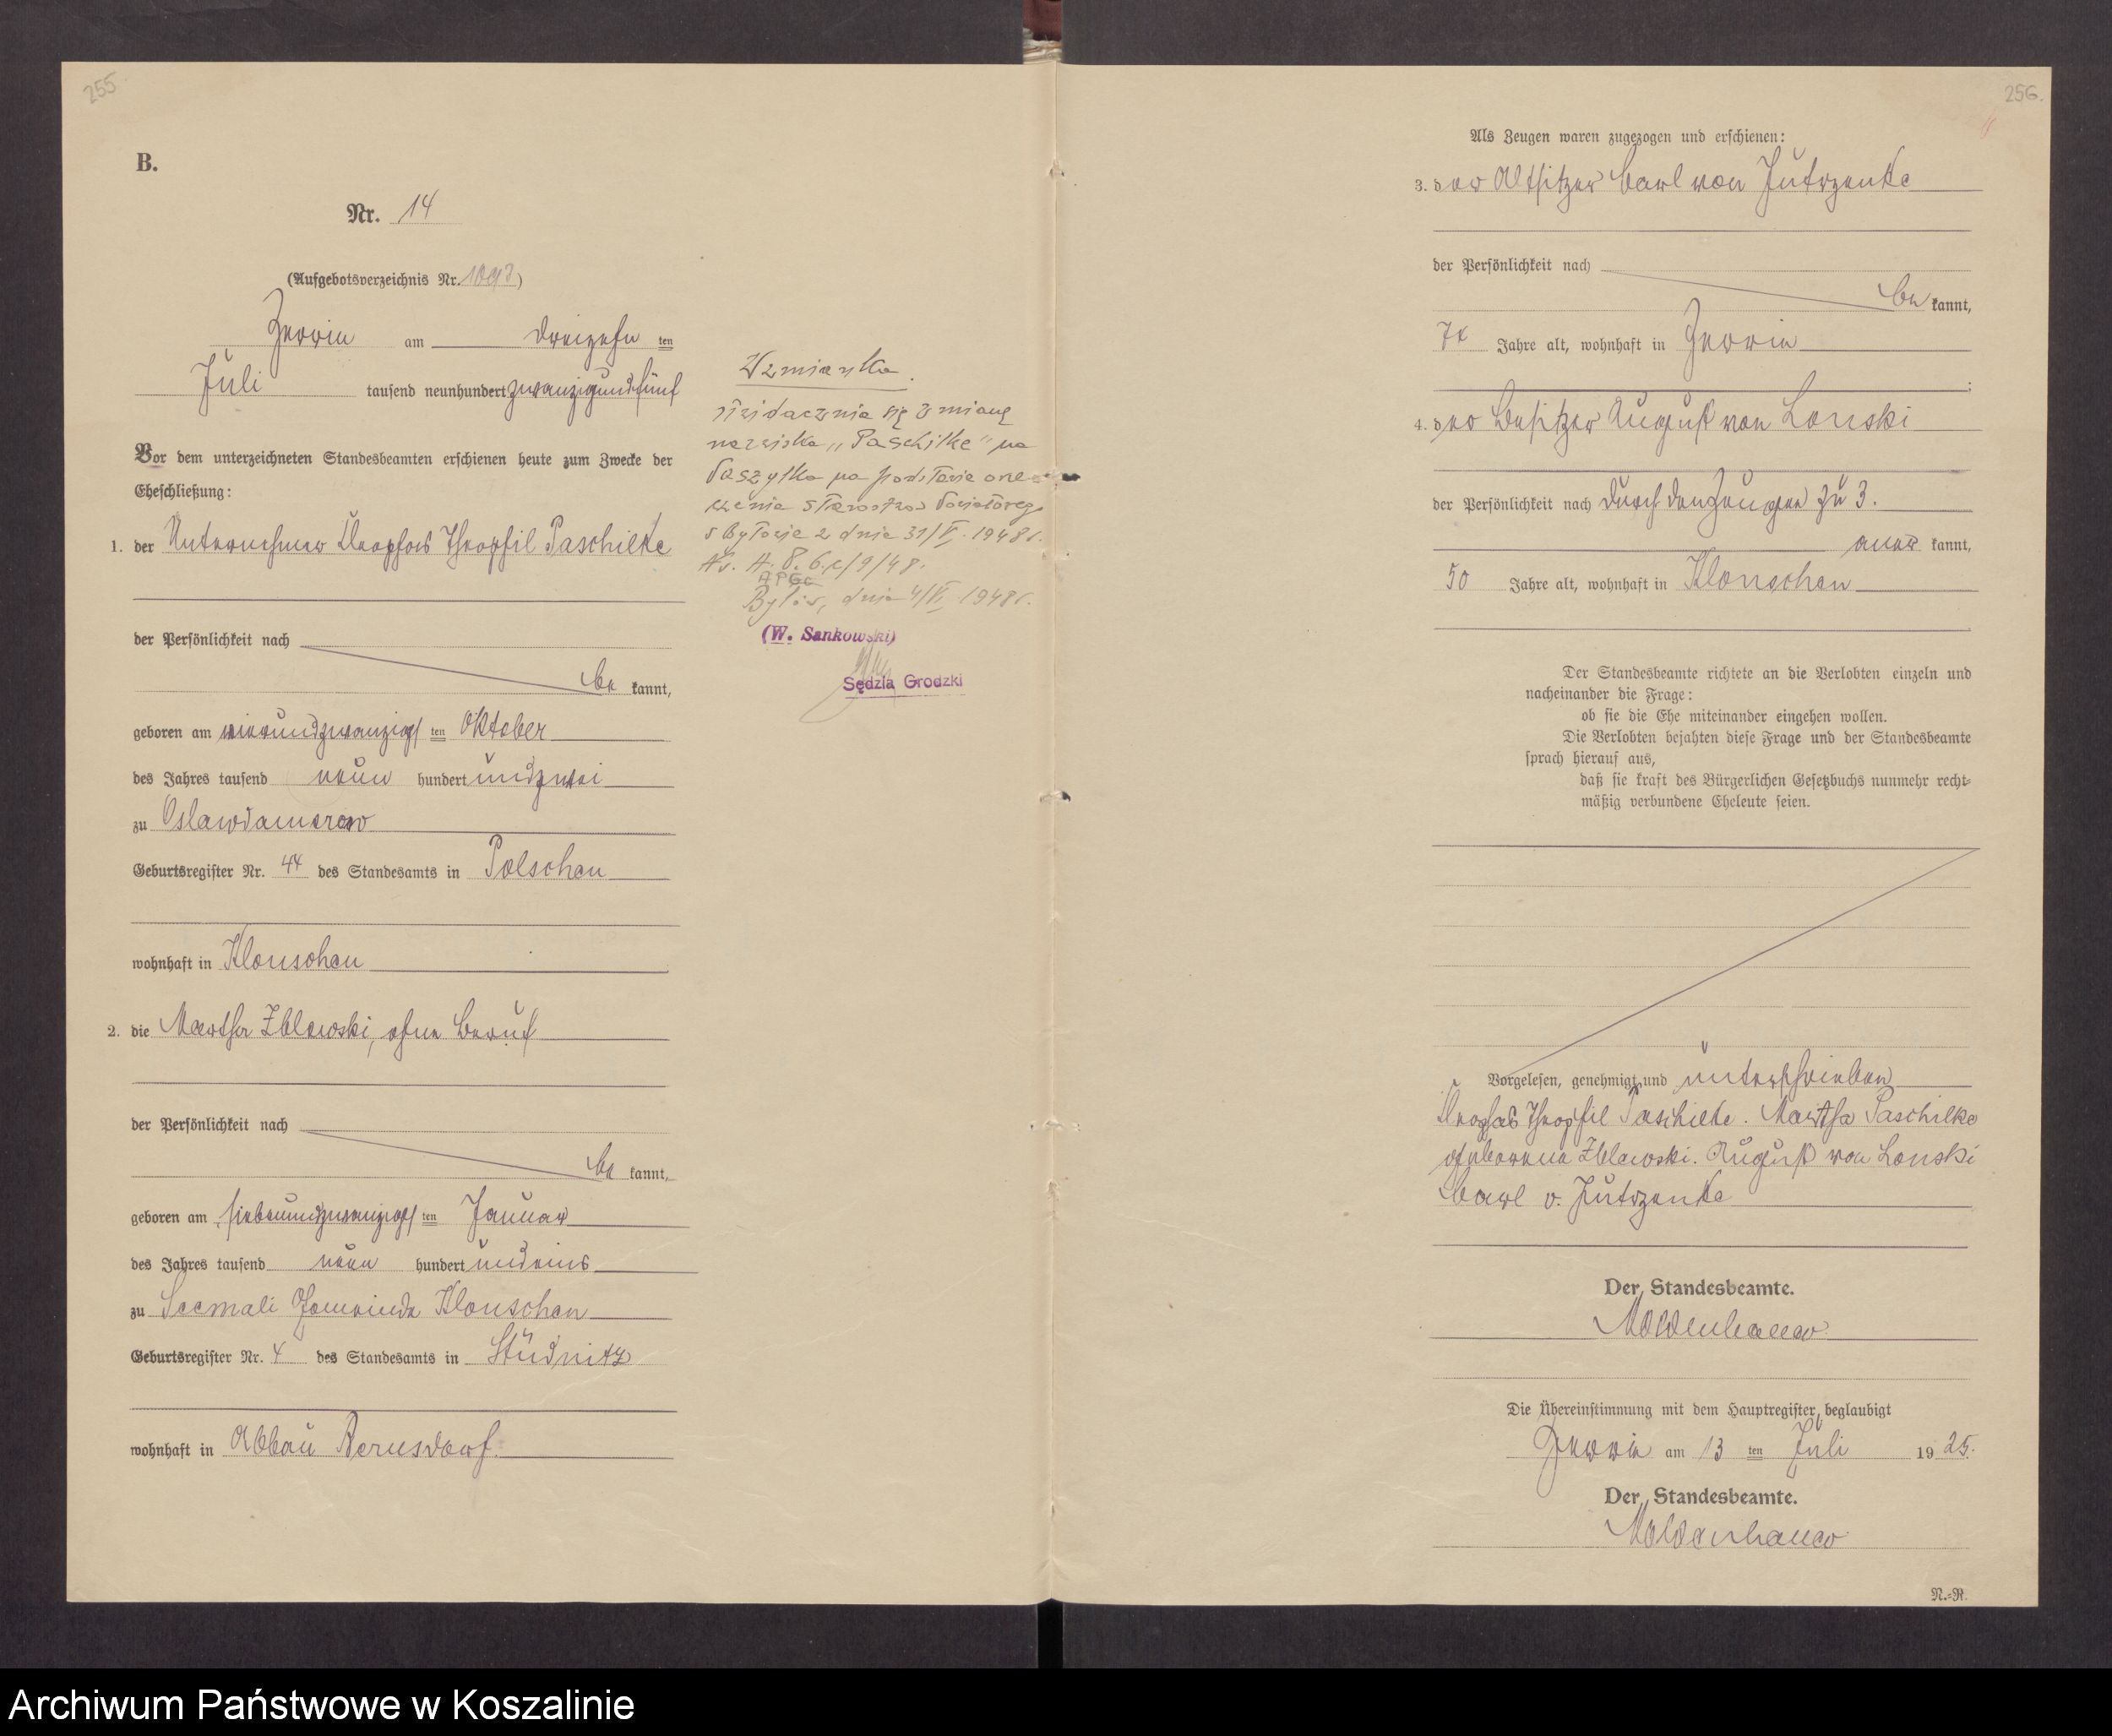 255
B.
Nr. 14
(Aufgebotsverzeichnis Nr. )
Zerrin am dreizehn ten
Juli tausend neunhundert zwanzigundfünf
Vor dem unterzeichneten Standesbeamten erschienen heute zum Zwecke der
Eheschließung:
1. der Unternehmer Theophil Paschilke
der Persönlichkeit nach
be kannt,
geboren am vierundzwanzigs ten Oktober
des Jahres tausend neun hundert undzwei
zu Oslawdamerow
Geburtsregister Nr. 44 des Standesamts in Polschen
wohnhaft in Klonschen
2. die Martha Zblewski, ohne Beruf
der Persönlichkeit nach
be kannt,
geboren am siebenundzwanzigs ten Januar
des Jahres tausend neun hundert undeins
zu Gemeinde Klonschen
Geburtsregister Nr. 4 des Standesamts in Stüdnitz
wohnhaft in Abbau Bernsdorf.
Wzmianka.
się zmianę
nazwiska „Paschilke" na
Paszylka na podstawie orze-
czenia Starostwa Powiatowego
w Bytowie z dnia 31/V. 1948 r.
Bytów, dnia 4/VI 1948 r.
(W. Sankowski)
Sędzia Grodzki
256.
Als Zeugen waren zugezogen und erschienen:
3. der Altsitzer Carl von Jutrzenke
der Persönlichkeit nach
be kannt,
Jahre alt, wohnhaft in Zerrin
;
4. der Besitzer August von Lonski
der Persönlichkeit nach durch den Zeugen zu 3.
aner kannt,
50 Jahre alt, wohnhaft in Klonschen
Der Standesbeamte richtete an die Verlobten einzeln und
nacheinander die Frage:
ob sie die Ehe miteinander eingehen wollen.
Die Verlobten bejahten diese Frage und der Standesbeamte
sprach hierauf aus,
daß sie kraft des Bürgerlichen Gesetzbuchs nunmehr recht-
mäßig verbundene Eheleute seien.
Vorgelesen, genehmigt und unterschrieben
Theophil Paschilke. Martha Paschilke
geborene Zblewski. August von Lonski
Carl v. Jutrzenka
Der Standesbeamte.
Moldenhauer
Die Übereinstimmung mit dem Hauptregister beglaubigt
Zerrin am 13 ten Juli 19 25.
Der Standesbeamte.
Moldenhauer
N.-R.
Archiwum Państwowe w Koszalinie